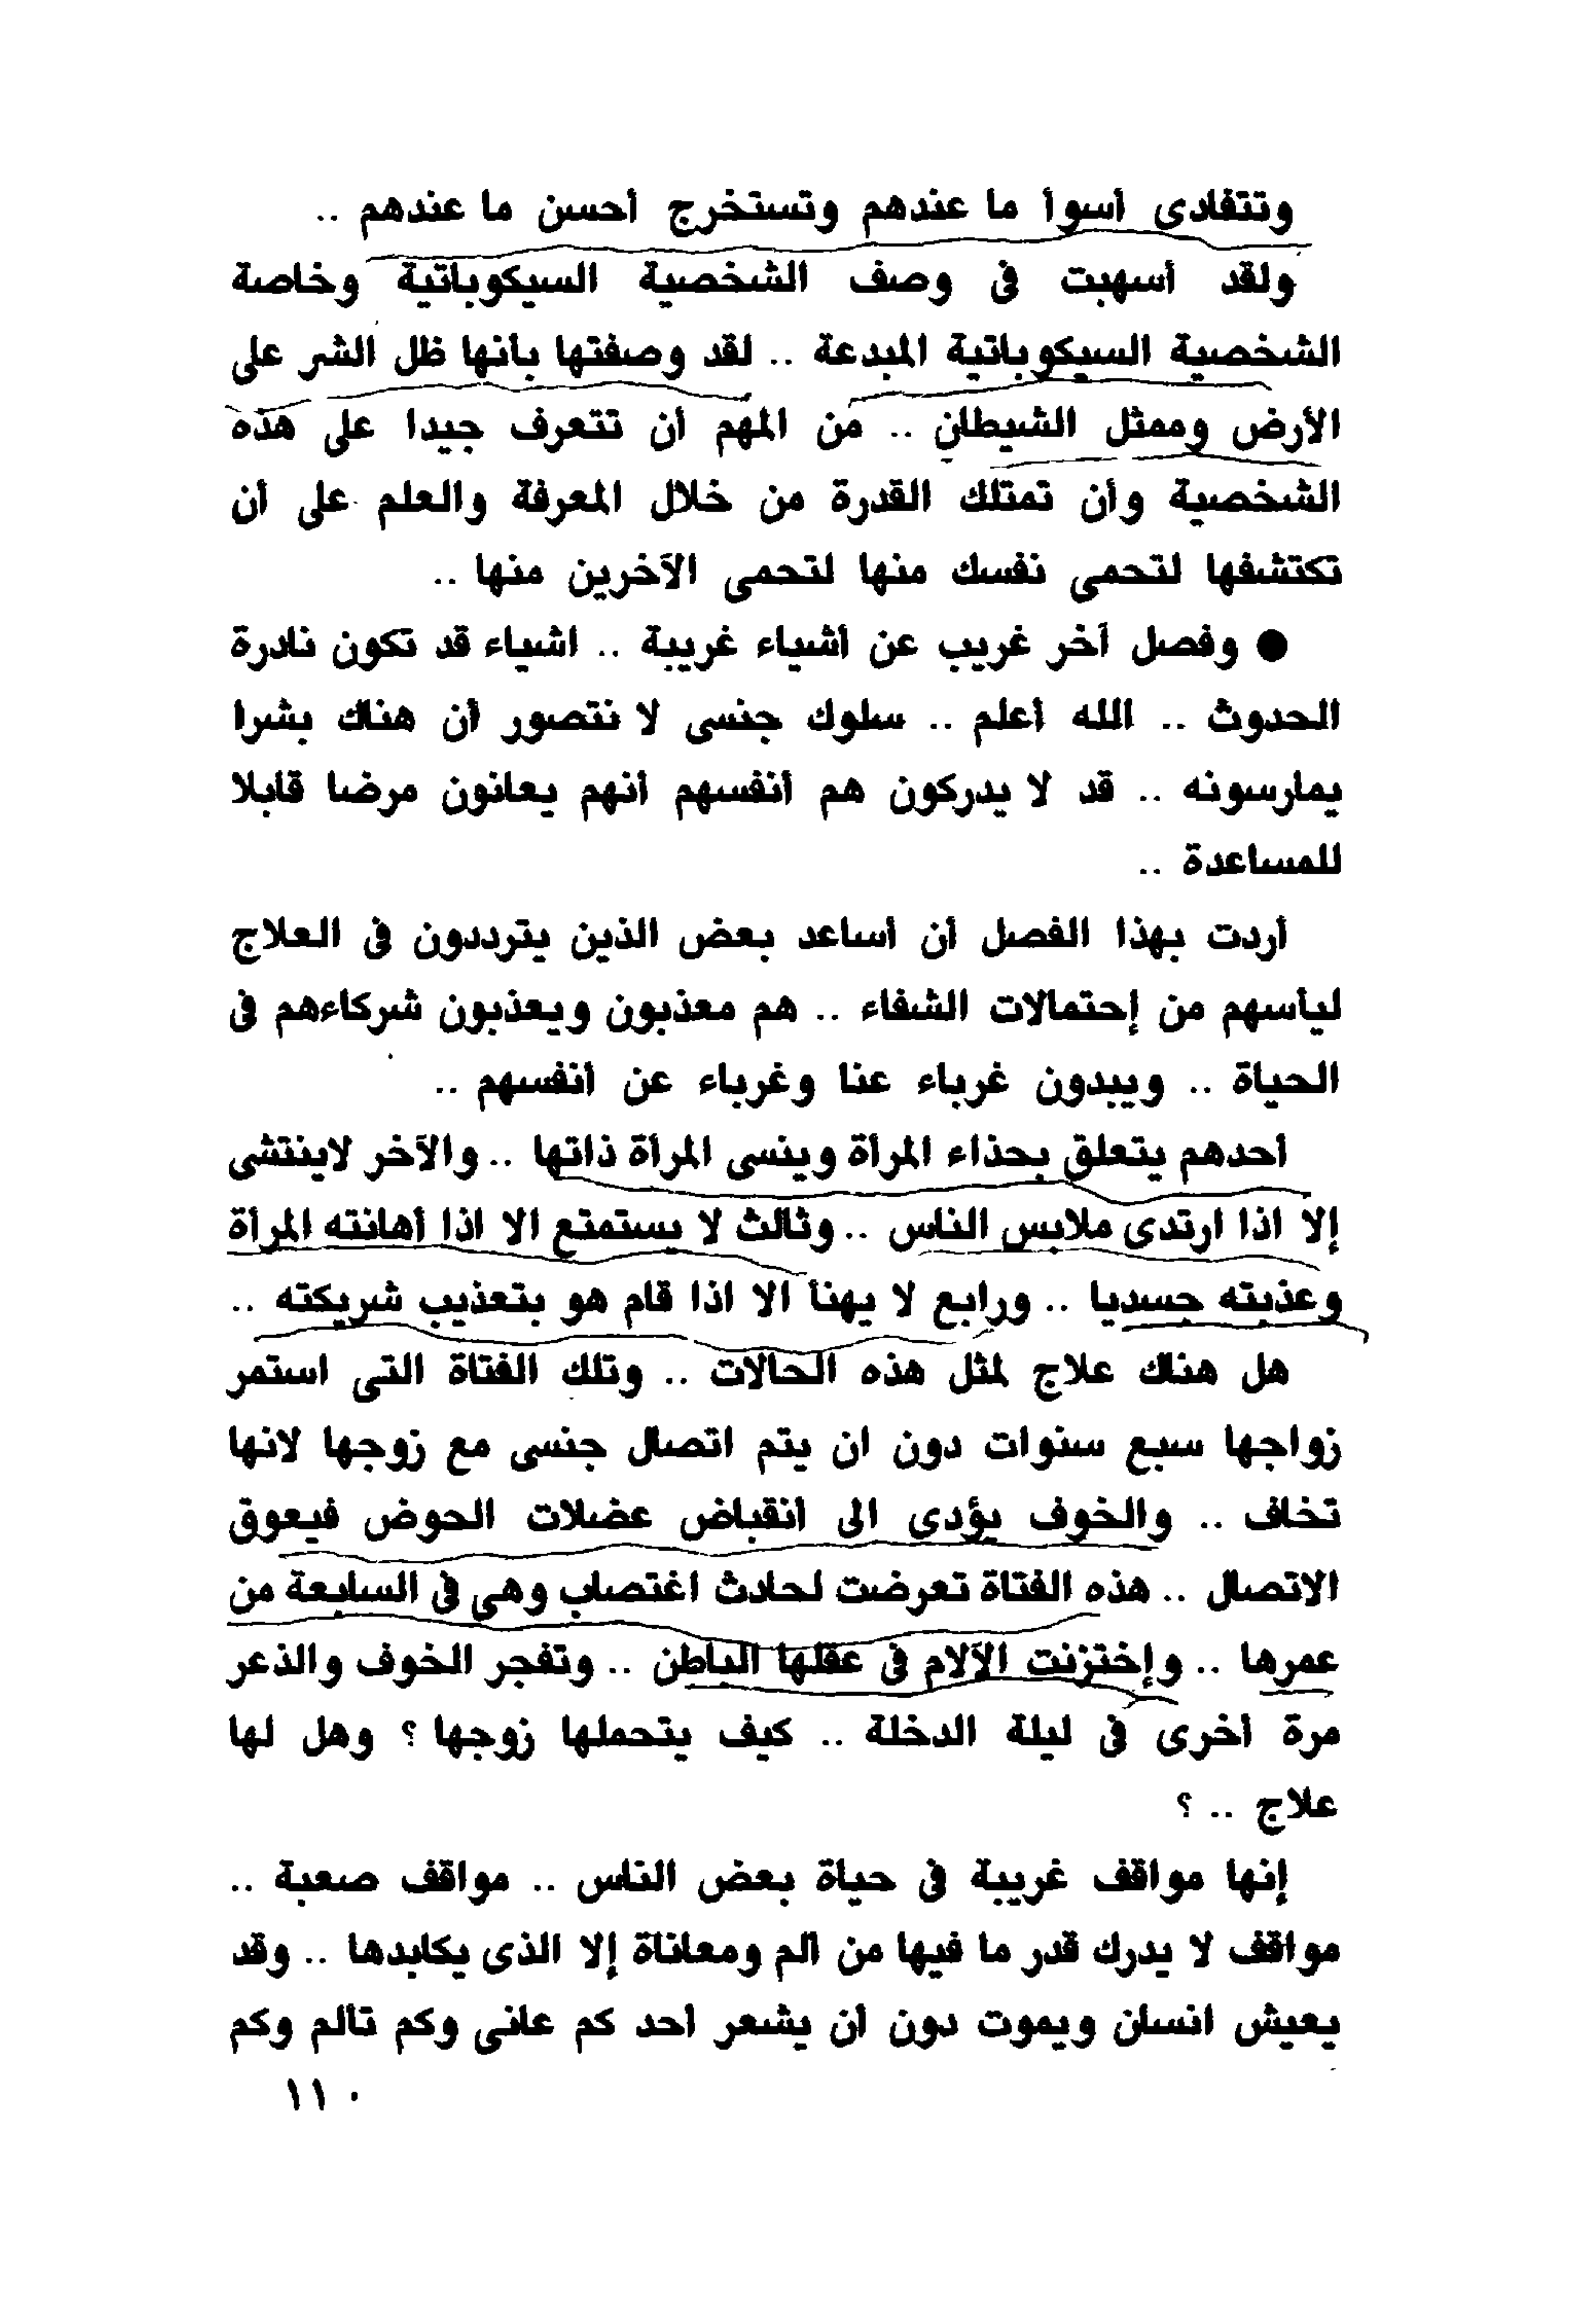 وتتفادى أسوأ ما عندهم وتستخرج أحسن ما عندهم ..
ولقد أسهبت فى وصف الشخصية السيكوباتية وخاصة
الشخصية السيكوباتية المبدعة .. لقد وصفتها بأنها ظل الشر على
الأرض وممثل الشيطان .. من المهم أن تتعرف جيدا على هذه
الشخصية وأن تمتلك القدرة من خلال المعرفة والعلم على أن
تكتشفها لتحمى نفسك منها لتحمى الآخرين منها ..
● وفصل آخر غريب عن أشياء غريبة .. اشياء قد تكون نادرة
الحدوث .. الله أعلم .. سلوك جنسى لا نتصور أن هناك بشرا
يمارسونه .. قد لا يدركون هم أنفسهم أنهم يعانون مرضا قابلا
للمساعدة ..
أردت بهذا الفصل أن أساعد بعض الذين يترددون فى العلاج
ليأسهم من إحتمالات الشفاء .. هم معذبون ويعذبون شركاءهم فى
الحياة .. ويبدون غرباء عنا وغرباء عن أنفسهم ..
أحدهم يتعلق بحذاء المرأة وينسى المرأة ذاتها .. والآخر لاينتشى
إلا اذا ارتدى ملابس الناس .. وثالث لا يستمتع الا اذا أهانته المرأة
وعذبته جسديا .. ورابع لا يهنأ الا اذا قام هو بتعذيب شريكته ..
هل هناك علاج لمثل هذه الحالات .. وتلك الفتاة التى استمر
زواجها سبع سنوات دون ان يتم اتصال جنسى مع زوجها لانها
تخاف .. والخوف يؤدى الى أنقباض عضلات الحوض فيعوق
الاتصال .. هذه الفتاة تعرضت لحادث اغتصاب وهى فى السابعة من
عمرها .. وإختزنت الآلام فى عقلها الباطن .. وتفجر الخوف والذعر
مرة أخرى فى ليلة الدخلة .. كيف يتحملها زوجها ؟ وهل لها
علاج .. ؟
إنها مواقف غريبة فى حياة بعض الناس .. مواقف صعبة ..
مواقف لا يدرك قدر ما فيها من ألم ومعاناة إلا الذى يكابدها .. وقد
يعيش انسان ويموت دون أن يشعر أحد كم عانى وكم تألم وكم
١١٠